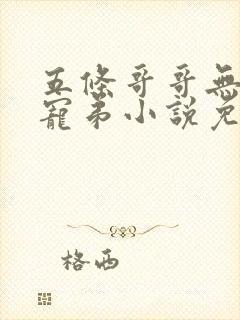 五條哥哥無
寵弟小說免
格西